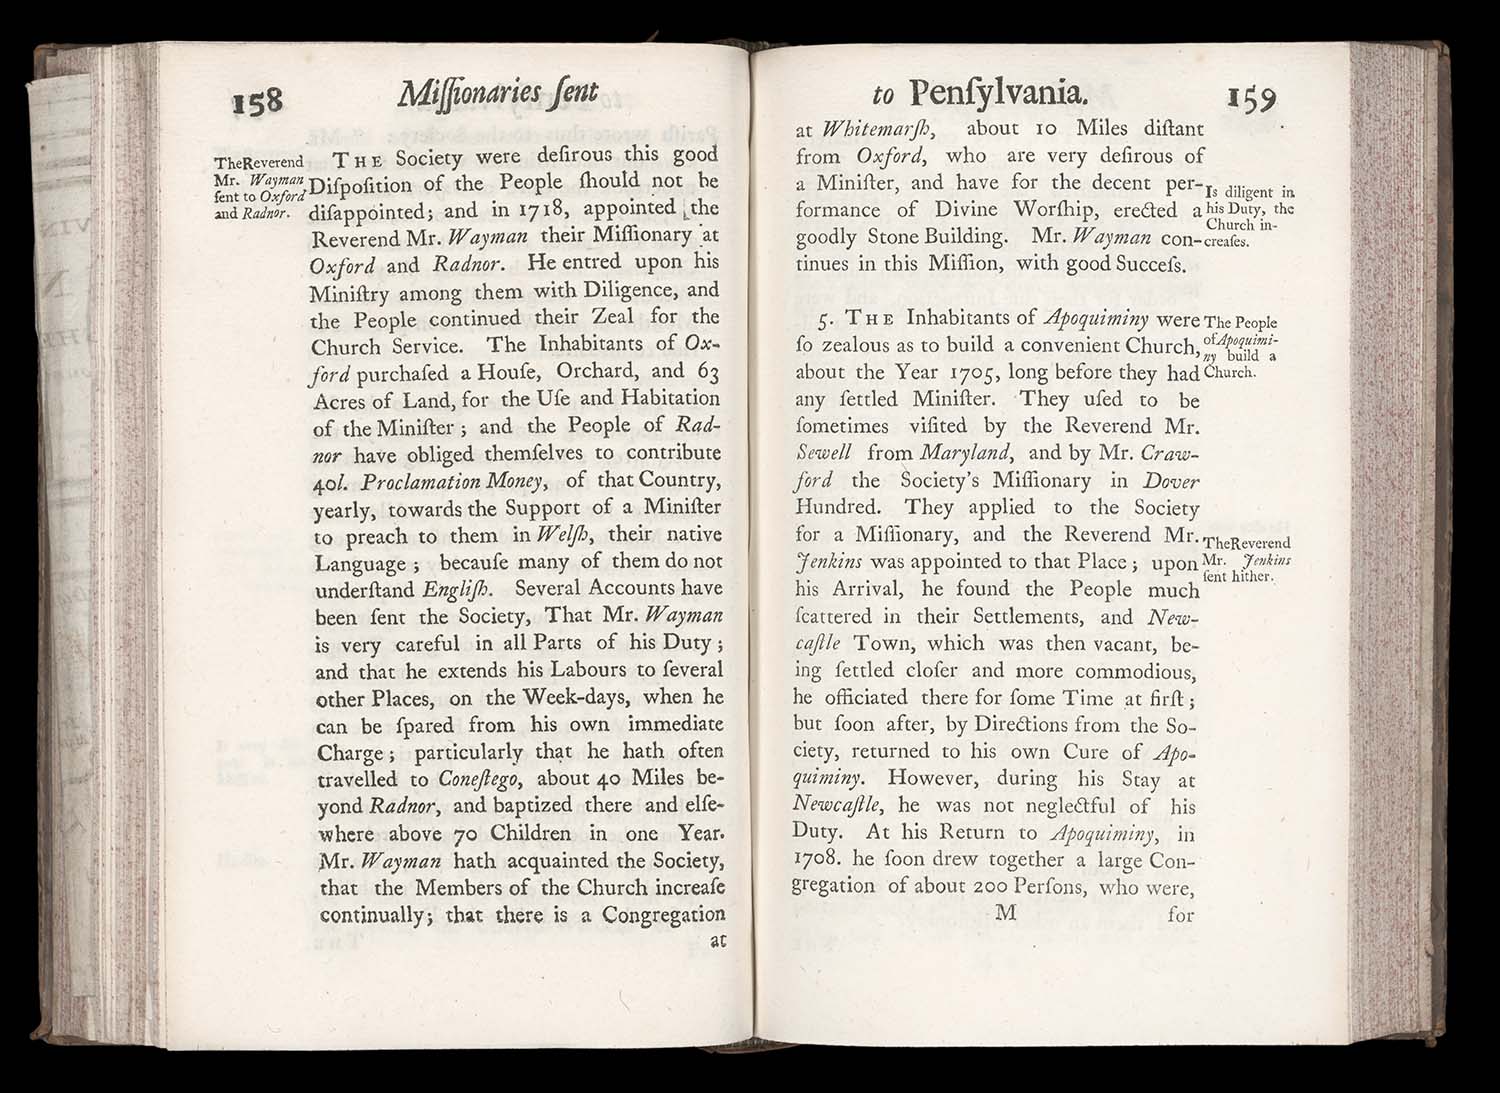 158
Miſſionaries ſent
TheReverend
Mr. Wayman
ſent to Oxford
and Radnor.
THE Society were deſirous this good
Diſpoſition of the People ſhould not be
diſappointed; and in 1718, appointed the
Reverend Mr. Wayman their Miſſionary at
Oxford and Radnor. He entred upon his
Miniſtry among them with Diligence, and
the People continued their Zeal for the
Church Service. The Inhabitants of Ox-
ford purchaſed a Houſe, Orchard, and 63
Acres of Land, for the Uſe and Habitation
of the Miniſter; and the People of Rad-
nor have obliged themſelves to contribute
40l. Proclamation Money, of that Country,
yearly, towards the Support of a Miniſter
to preach to them in Welſh, their native
Language; becauſe many of them do not
underſtand Engliſh. Several Accounts have
been ſent the Society, That Mr. Wayman
is very careful in all Parts of his Duty;
and that he extends his Labours to ſeveral
other Places, on the Week-days, when he
can be ſpared from his own immediate
Charge; particularly that he hath often
travelled to Coneſtego, about 40 Miles be-
yond Radnor, and baptized there and elſe-
where above 70 Children in one Year.
Mr. Wayman hath acquainted the Society,
that the Members of the Church increaſe
continually; that there is a Congregation
at
to Penſylvania.
159
at Whitemarſh, about 10 Miles diſtant
from Oxford, who are very deſirous of
a Miniſter, and have for the decent per-
formance of Divine Worſhip, erected a
goodly Stone Building. Mr. Wayman con-
tinues in this Miſſion, with good Succeſs.
Is diligent in
his Duty, the
Church in-
creaſes.
5. THE Inhabitants of Apoquiminy were
ſo zealous as to build a convenient Church,
about the Year 1705, long before they had
any ſettled Miniſter. They uſed to be
ſometimes viſited by the Reverend Mr.
Sewell from Maryland, and by Mr. Craw-
ford the Society's Miſſionary in Dover
Hundred. They applied to the Society
for a Miſſionary, and the Reverend Mr.
Jenkins was appointed to that Place; upon
his Arrival, he found the People much
ſcattered in their Settlements, and New-
caſtle Town, which was then vacant, be-
ing ſettled cloſer and more commodious,
he officiated there for ſome Time at firſt;
but ſoon after, by Directions from the So-
ciety, returned to his own Cure of Apo-
quiminy. However, during his Stay at
Newcaſtle, he was not neglectful of his
Duty. At his Return to Apoquiminy, in
1708. he ſoon drew together a large Con-
gregation of about 200 Perſons, who were,
The People
of Apoquimi-
ny build a
Church.
TheReverend
Mr. Jenkins
ſent hither.
M
for